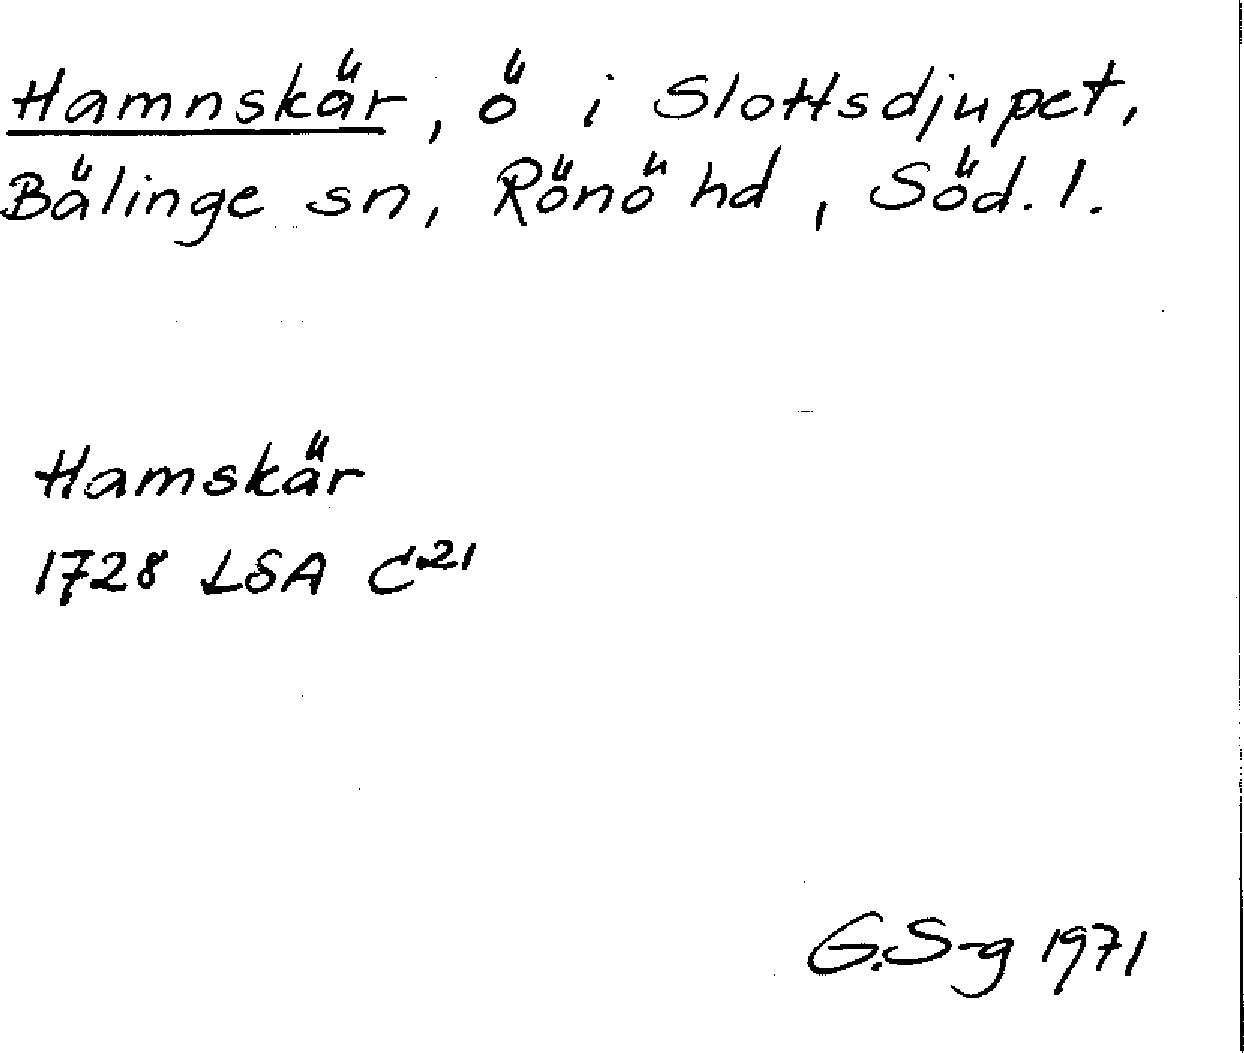 Hamnskär, ö i Slottsdjupet,
Bälinge sn, Rönö hd, Söd. l.
Hamskär
1728 LSA C²¹
G.S-g 1971